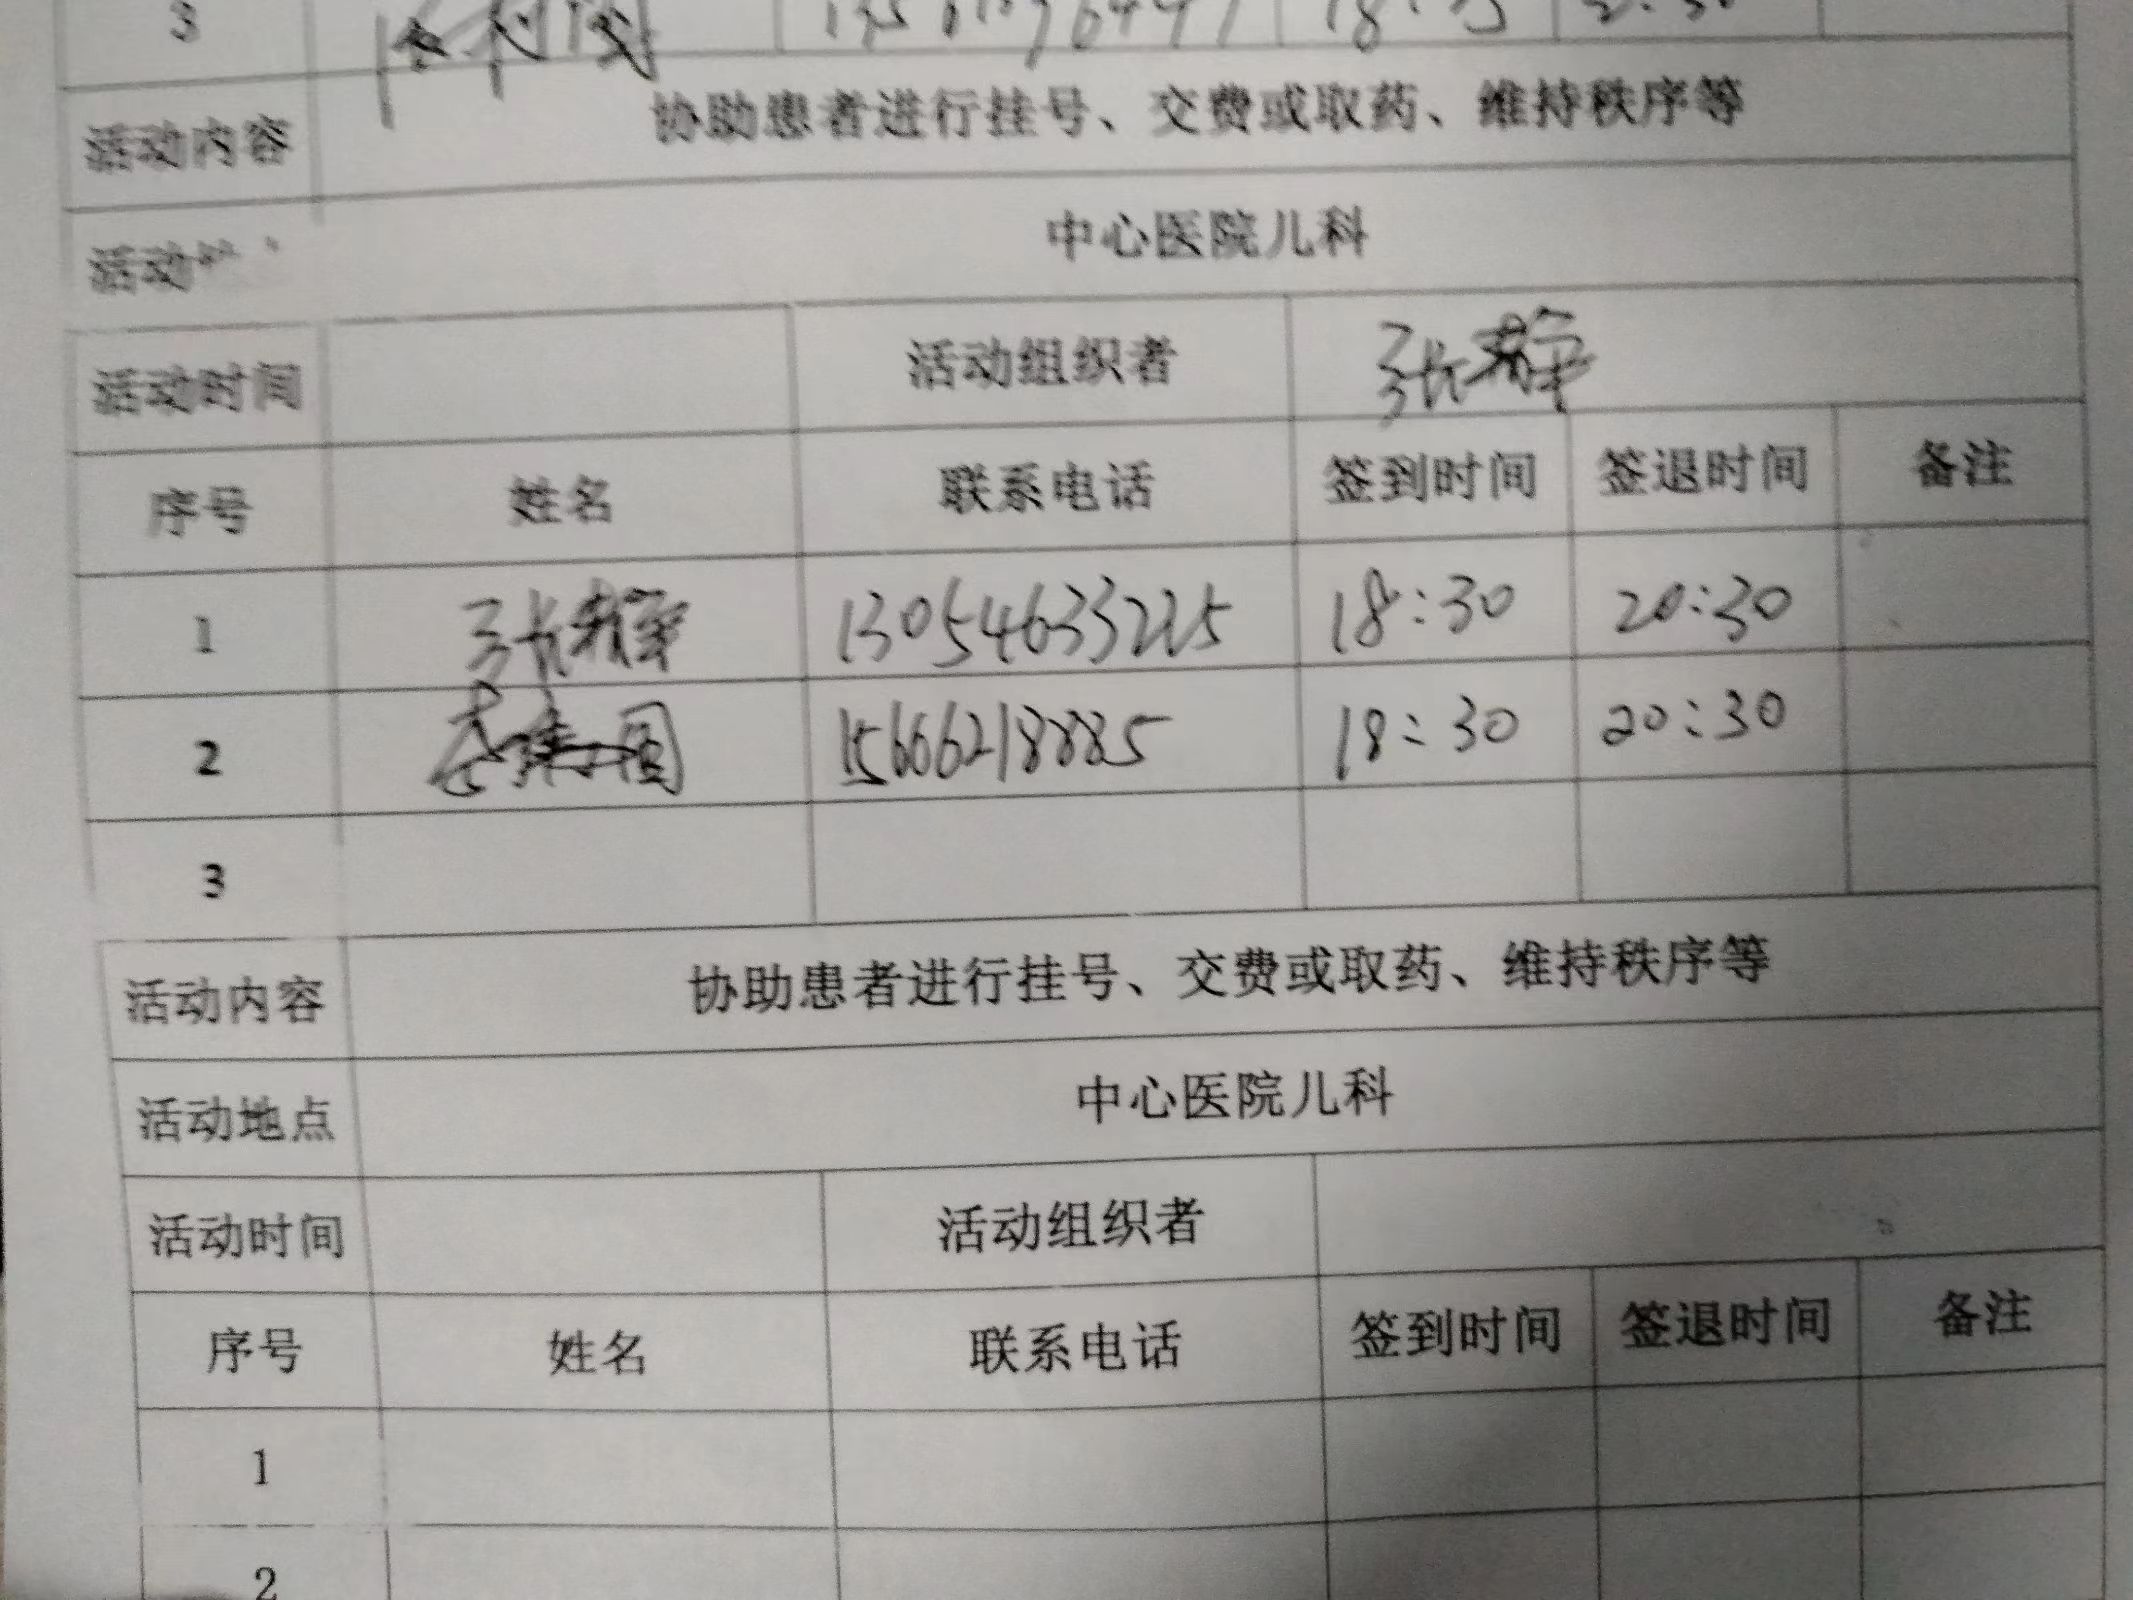 3
活动内容 协助患者进行挂号、交费或取药、维持秩序等
活动 中心医院儿科
活动时间 活动组织者 张
序号 姓名 联系电话 签到时间 签退时间 备注
1 张 13054633225 18:30 20:30
2 15666218885 18:30 20:30
3
活动内容 协助患者进行挂号、交费或取药、维持秩序等
活动地点 中心医院儿科
活动时间 活动组织者
序号 姓名 联系电话 签到时间 签退时间 备注
1
2